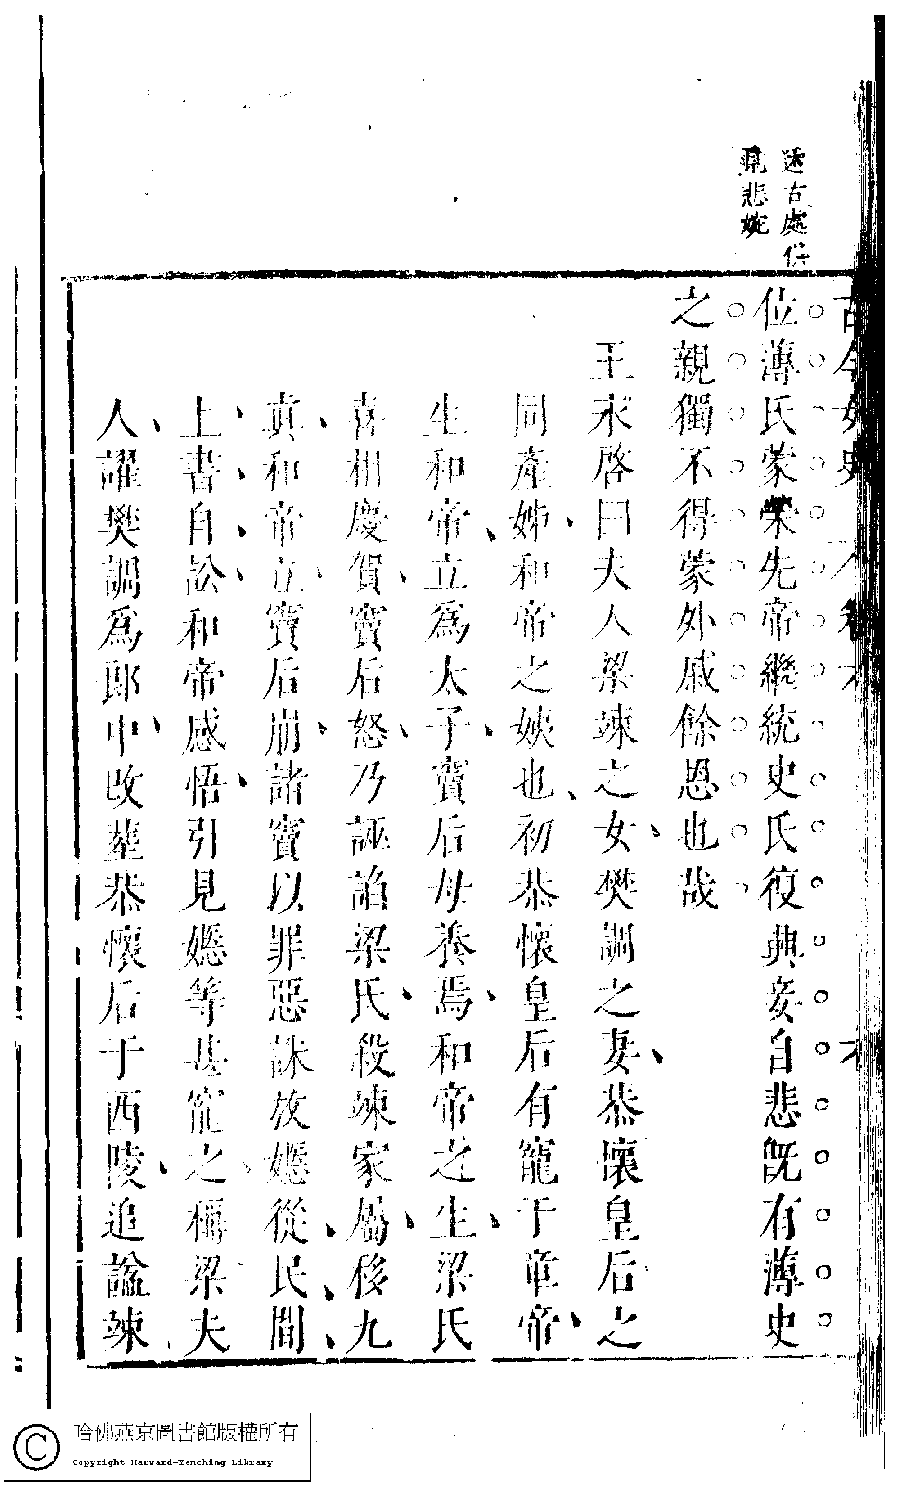 述古處俱
見悲婉
古今女史 卷六 六
位薄氏蒙榮先帝繼統史氏復興妾自悲旣有薄史
之親獨不得蒙外戚餘恩也哉
王永啓曰夫人梁竦之女樊調之妻恭懷皇后之
同產姊和帝之姨也初恭懷皇后有寵于章帝
生和帝立爲太子竇后母養焉和帝之生梁氏
喜相慶賀竇后怒乃誣諂梁氏殺竦家屬移九
真和帝立竇后崩諸竇以罪惡誅放嫕從民間
上書自訟和帝感悟引見嫕等甚寵之稱梁夫
人擢樊調爲郎中改塟恭懷后于西陵追諡竦
哈佛燕京圖書館版權所有
Copyright Harvard-Yenching Library